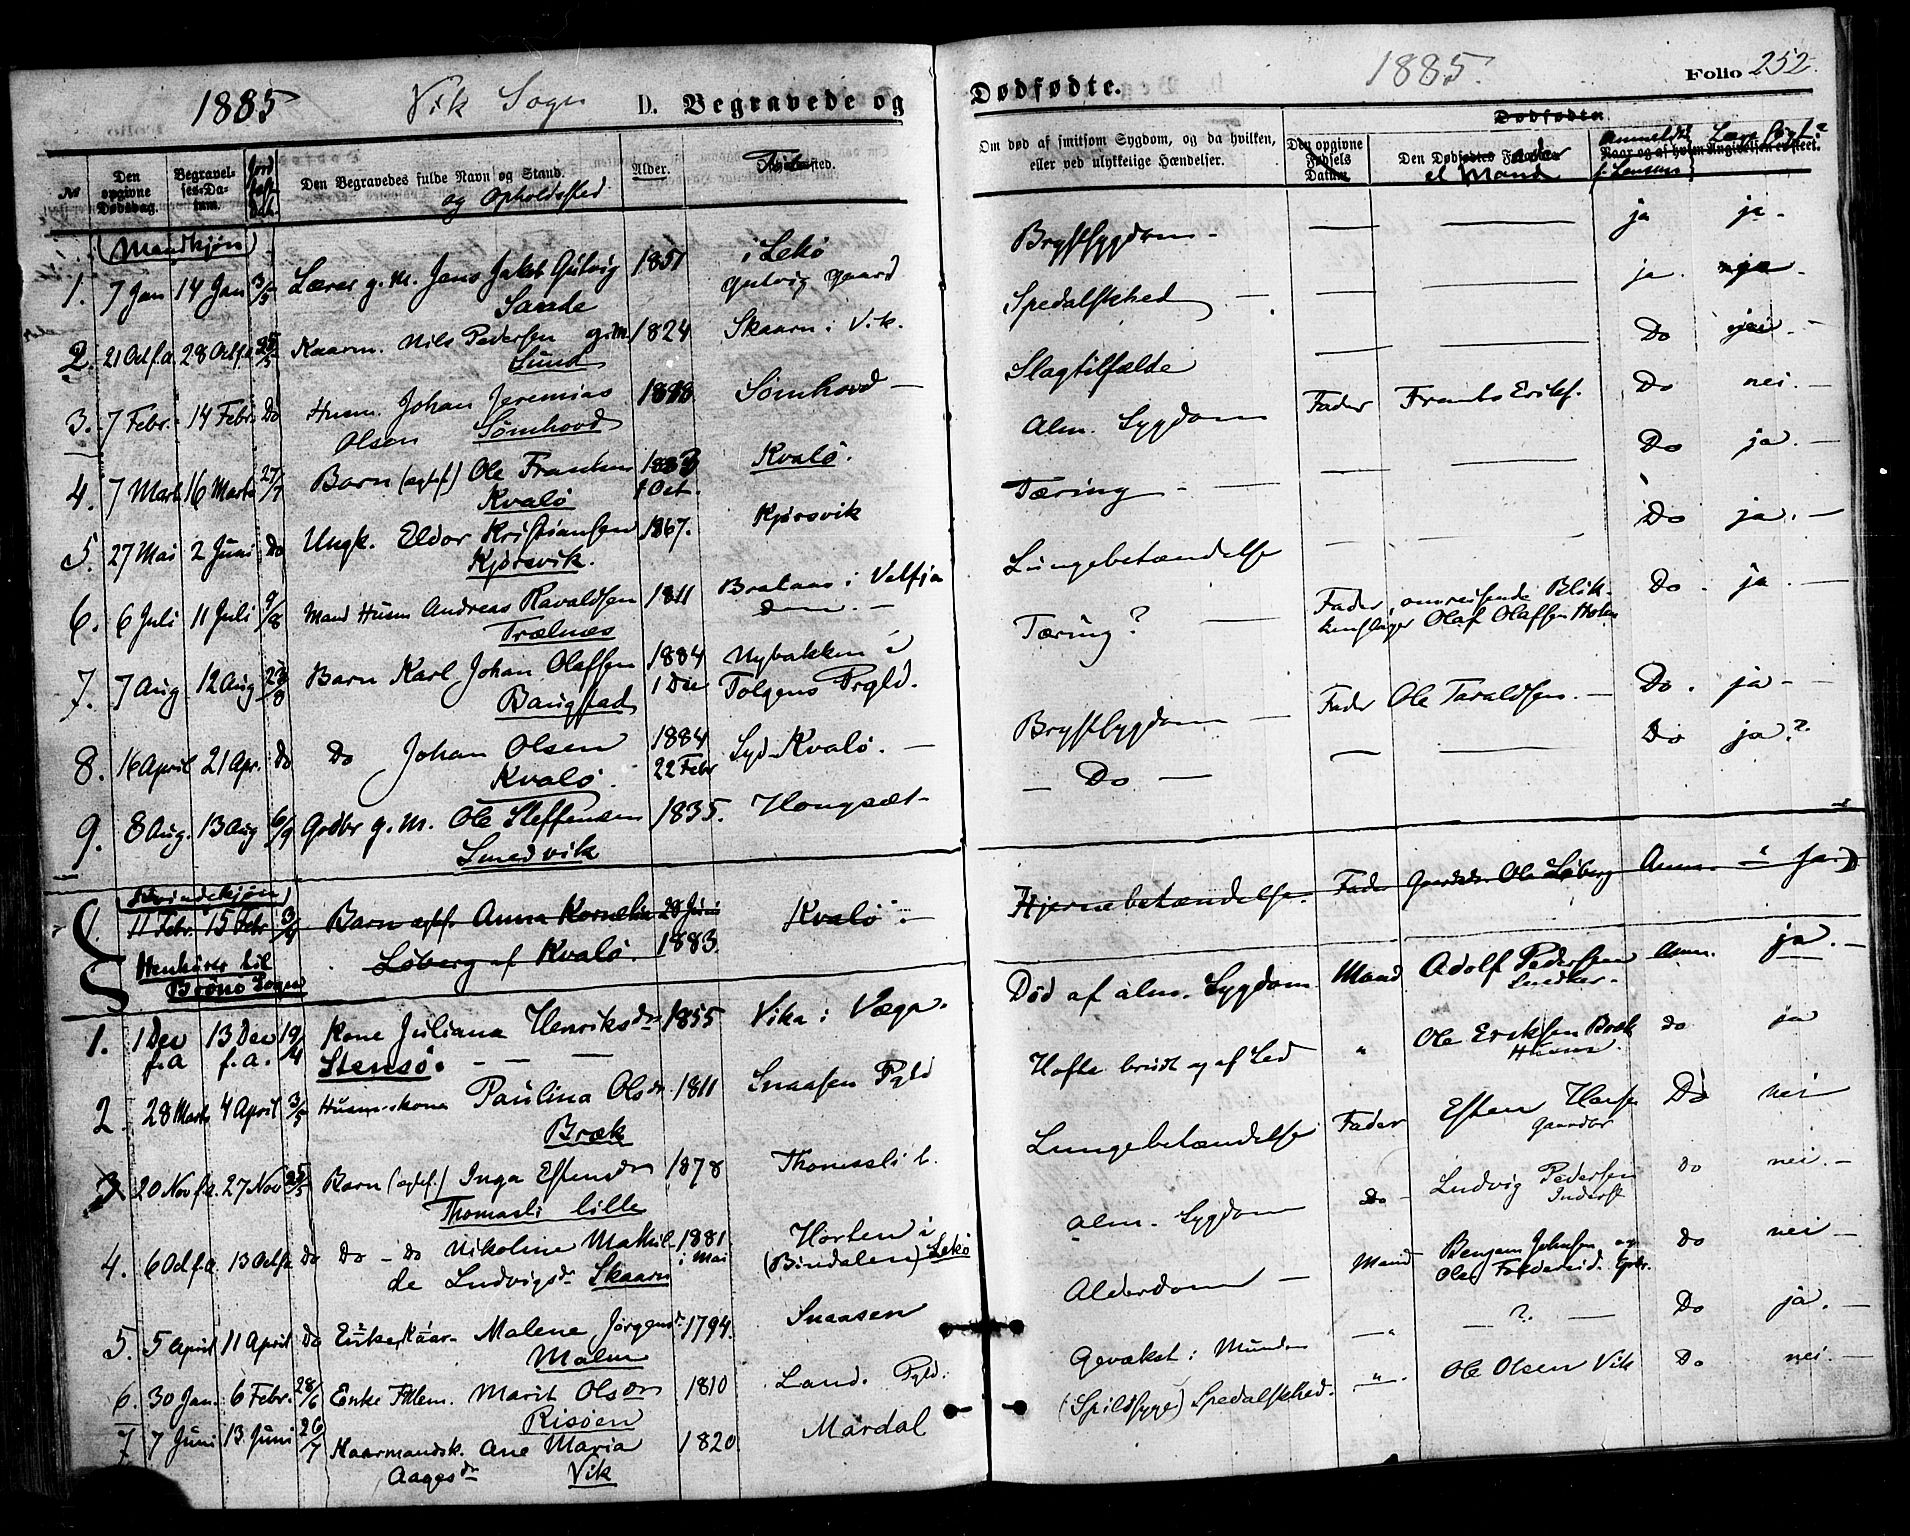 1885 Vik Sogn D. Begravede og
№ Den opgivne Dødsdag. Begravelses-Datum. Den Begravedes fulde Navn og Stand. og Opholdssted Alder. Fødested.
(Mandkjøn)
1. 7 Jan 14 Jan 3/5 Lærer g. M. Jens Jakob Gutvig 1851 i Lekø
Sande Gutvig gaard
2. 21 Oct f.a. 28 Oct f.a. 25/5 Kaarm. Nils Pedersen g.m. 1824 Skaarn i Vik.
Lund
3. 7 Febr. 14 Febr. Do Husm. Johan Jeremias Sømhovd —
Olsen Sømhovd
4. 7 Marts 16 Marts 27/7 Barn (ægtef.) Ole Frantsen 1883 Kvalø.
Kvalø 1 Oct.
5. 27 Mai 2 Juni Do Ungk. Eldor Kristiansen 1867. Kjørsvik
Kjørsvik.
6. 6 Juli 11 Juli 9/8 Mand Husm Andreas Ravaldsen 1811 i Velfjor
Trælnes den. —
7. 7 Aug 12 Aug 23/8 Barn Karl Johan Olaffsen 1884 Nybakken i
Baugstad 1 Dec Tolgens Prgld.
8. 16 April 21 Apr. Do Do Johan Olsen 1884 Syd Kvalø. —
Kvalø. 22 Febr
9. 8 Aug. 13 Aug 6/9 Grdbr g. M. Ole Steffensen 1835. Hongsæt-
Smedvik
(Kvindekjøn)
1. 11 Febr. 15 Febr 3/9 Barn ægtf. Anna Kornelia 20 Juni Kvalø. —
Løberg af Kvalø. 1883.
Henhører til
Brønø Sogn
1. 1 Dec 13 Dec 19/4 Kone Juliana Henriksdr 1855 Vika i Vega.
f.a f.a. Stensø. — — —
2. 28 Marts 4 April 3/5 Husm.skone Paulina Olsdr 1811 Snaasen Pgld
Bræk
3 20 Nov f.a. 27 Nov 25/5 Barn (ægtef.) Inga Estensdr 1878 Thomasli l.
Thomasli lille
4. 6 Oct f.a. 13 Oct f.a. Do Do - Do Nikoline Mathil- 1881 Horten i
de Ludvigsdr Skaarn i Mai (Bindalen) Lekø
5. 5 April 11 April Do Enke Kaar- Malene Jørgensdr 1794. Snaasen
Malm
6. 30 Jan. 6 Febr. 28/6 Enke Marit Olsdr 1810 Land. Pgld.
Risøen
7 7 Juni 13. Juni 26/7 Kaarmandsk. Ane Maria 1820 Mardal
Aagesdr Vik
Dødfødte. 1885. Folio 252.
Om død af smitsom Sygdom, og da hvilken, eller ved ulykkelige Hændelser. Den opgivne Fødsels Datum. Dødfødte. Den Dødfødtes Forældre el Mand Naar og af hvem Angivelsen er skeet. Anmeldt t. Lensm. Læge søgt?
Brystsygdom - — — ja ja -
Spedalskhed — — — ja. ja -
Slagtilfælde — — Do nei. -
Alm. Sygdom Fader Frants Eriks. Do nei. —
Tæring — — — — Do ja. —
Lungebetændelse — — Do ja. —
Tæring? — Fader, omreisende Blik- Do - ja —
kenslager Olaf Olaffsen Holen
Brystsygdom — Fader Ole Taraldsen. — Do. ja - -
— Do — — — Do ja.?
Hjernebetændelse. Fader Gaardbr. Ole Løberg Anm. - ja.
Død af alm. Sygdom Mand Adolf Pedersen Anm. ja. —
Snedker.
Hofte brudt og af Led " Ole Eriksen Bræk do ja
Husm.
Lungebetændelse Fader Esten Hansen Do nei
Gaardbr
alm. Sygdom Do - Ludvig Pedersen Do nei. —
Inderst
Alderdom — Mand Benjam Johnsen og Do nei. —
Gevækst i Munden —" — ? — Do ja. —
(Spildsyge) Spedalskhed. —"— Ole Olsen Vik Do nei. —